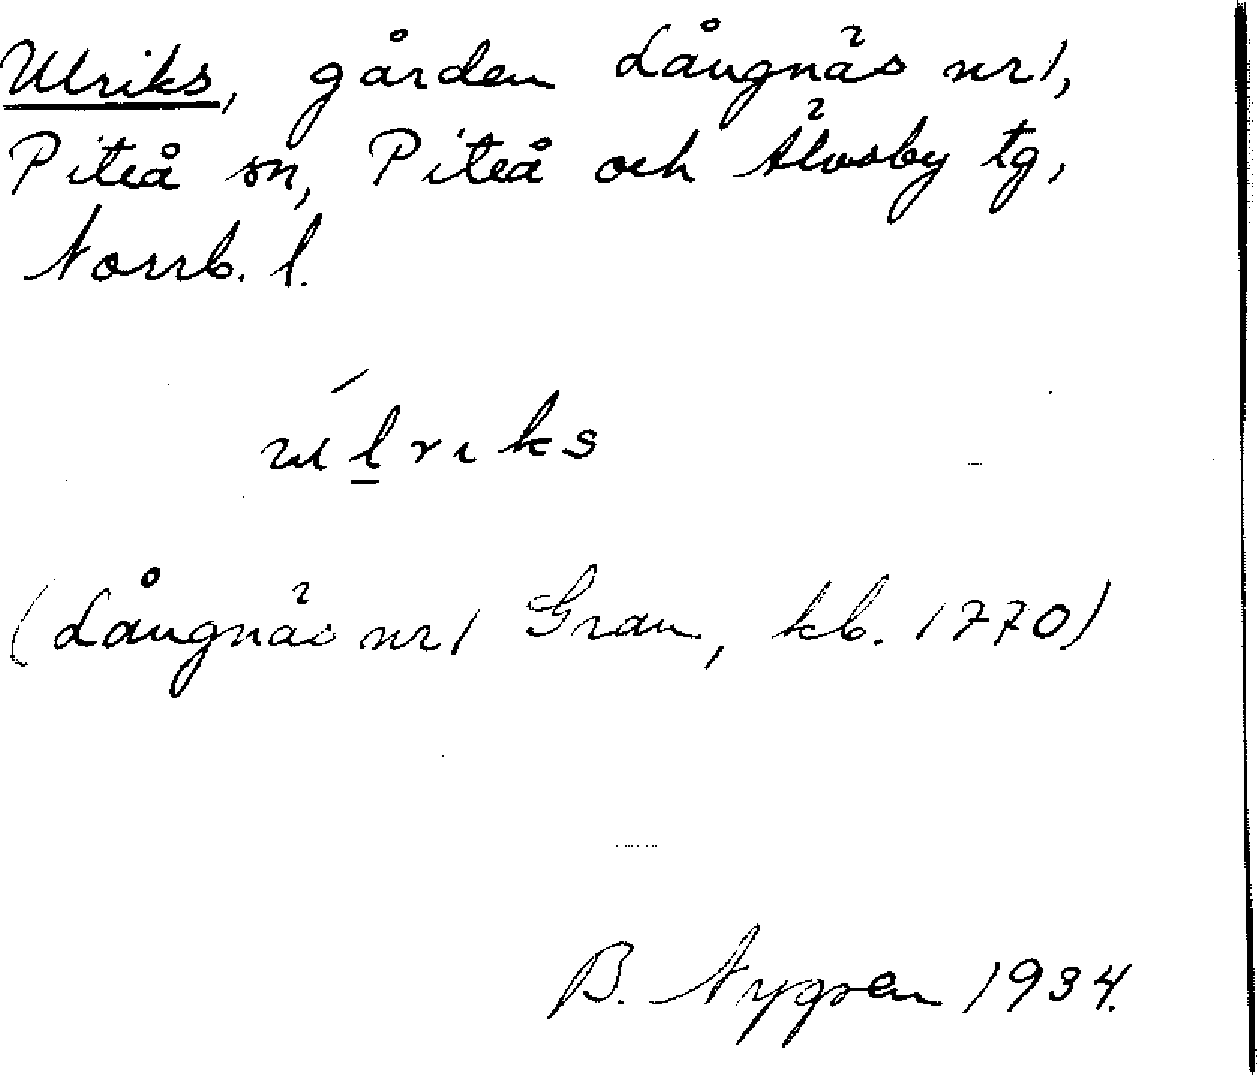 Ulriks, gården Långnäs nr 1,
Piteå sn, Piteå och Älvsby tg,
Norrb. l.
úl̲riks
(Långnäs nr 1 Gran, kb. 1770)
B. Nygren 1934.